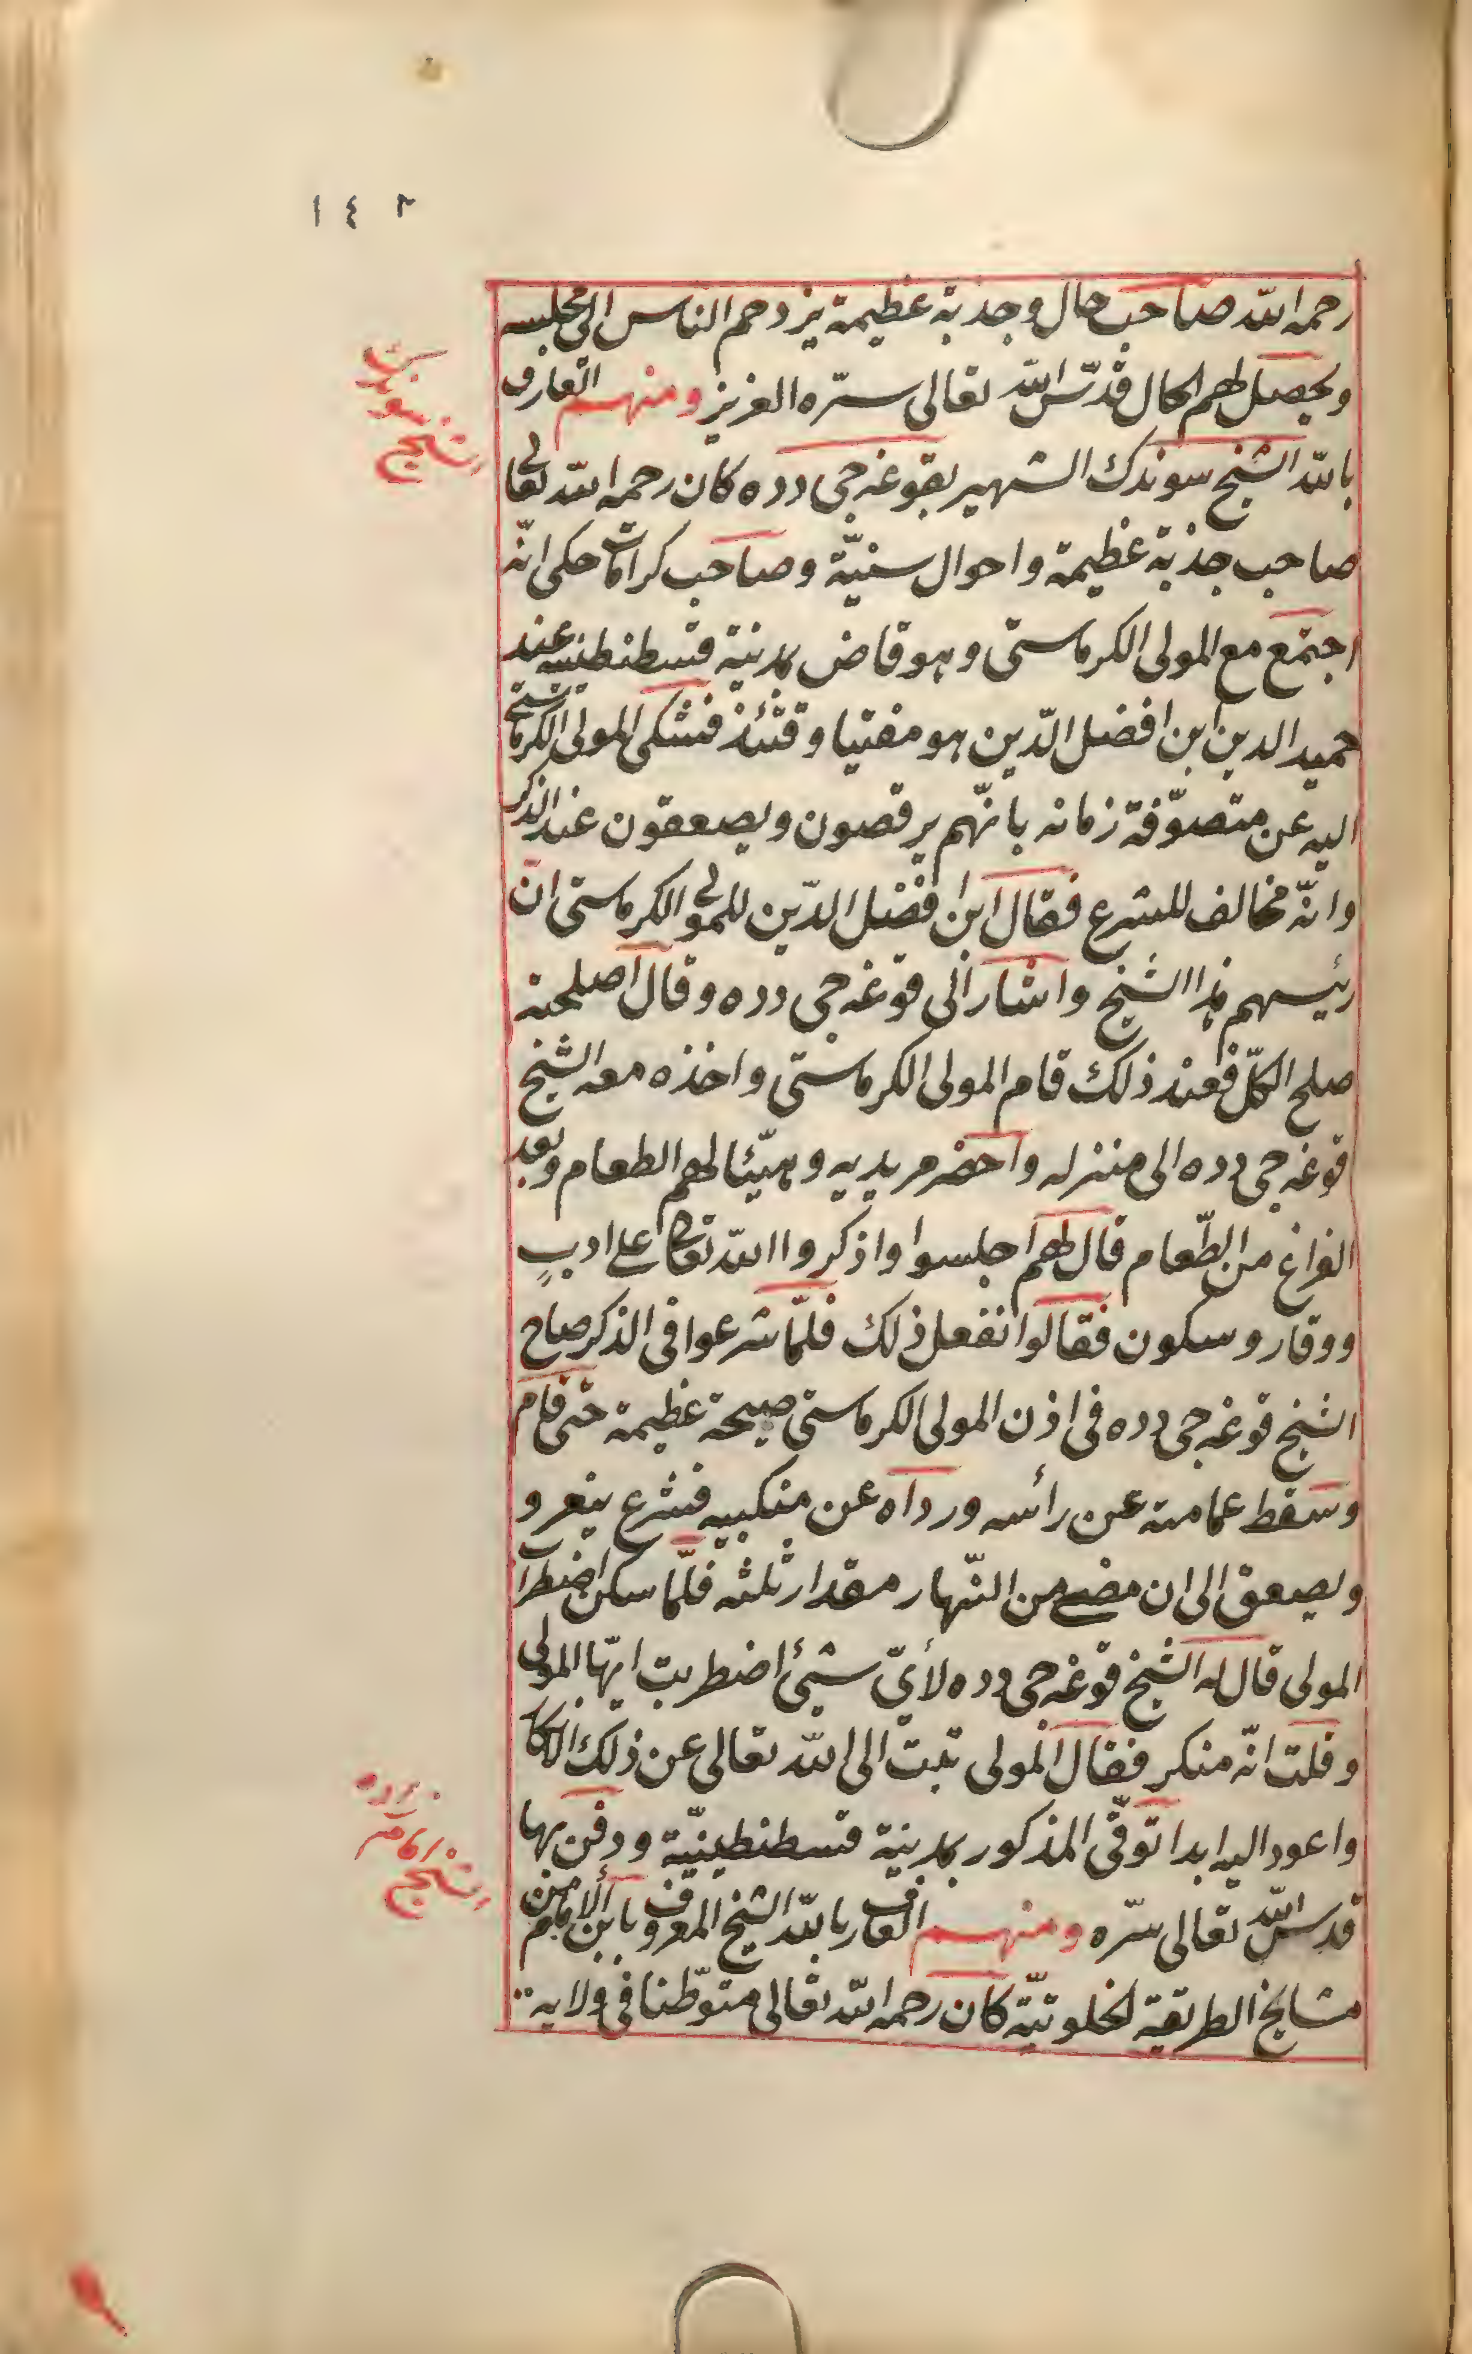 ١٤٢
رحمه الله صاحب حال وجذبة عظيمة يزدحم الناس الى مجلسه
ويحصل لهم الحال قدّس الله تعالى سرّه العزيز ومنهم العارف
بالله الشيخ سوندك الشهير بقوغه جى دده كان رحمه الله تعالى
صاحب جذبة عظيمة واحوال سنيّة وصاحب كرامات حكى انّه
اجتمع مع المولى الكرماستى وهو قاض بمدينة قسطنطنيه عند
حميد الدين ابن افضل الدّين هو مفتيا وقتئذ فشكى المولى الكرماستى
اليه عن متصوّفة زمانه بانّهم يرقصون ويصعقون عند الذكر
وانّه مخالف للشرع فقال ابن افضل الدّين للمولى الكرماستى انّ
رئيسهم هذا الشيخ واشار الى قوغه جى دده وقال اصلحته
صلح الكلّ فعند ذلك قام المولى الكرماستى واخذه معه الشيخ
قوغه جى دده الى منزله واحضر مريديه وهيّئا لهم الطعام وبعد
الفراغ من الطّعام قال لهم اجلسوا واذكروا الله تعالى على ادبٍ
ووقار وسكون فقالوا نفعل ذلك فلمّا شرعوا فى الذكر صاح
الشيخ قوغه جى دده فى اذن المولى الكرماستى صيحة عظيمة حتى قام
وسقط عمامته عن رائسه ورداه عن منكبيه فشرع ينعر و
ويصعق الى ان مضى من النّهار مقدار ثلثه فلمّا سكن اضطراب
المولى قال له الشيخ قوغه جى دده لأىّ شيئ اضطربت ايّها المولى
وقلت انّه منكر فقال المولى تبت الى الله تعالى عن ذلك الانكار
واعود اليه ابدا توفّى المذكور بمدينة قسطنطينيّة ودفن بها
قدس الله تعالى سرّه ومنهم العارف بالله الشيخ المعروف بابن الامام من
مشايخ الطريقة الخلوتيّة كان رحمه الله تعالى متوّطنا فى ولايه
الشيخ
سوندك
الشيخ